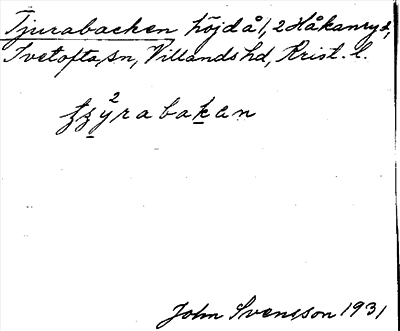 Tjurabacken höjd å 1, 2 Håkanryd,
Ivetofta sn, Villands hd, Krist. l.
John Svensson 1931